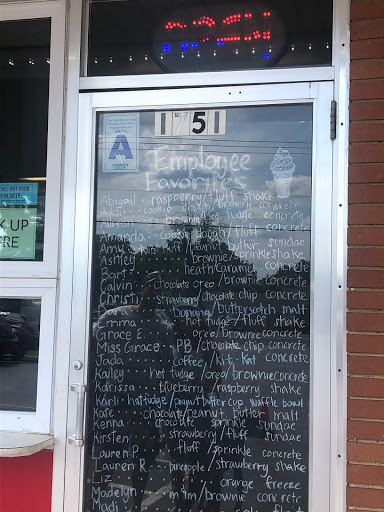 OPEN
1751
A
K UP
ERE
Employee
Favorites
Abigail.. raspberry/fluff shake
concrete
fudge concrete
Amanda.. cookie dough/fluff concrete
fluff/peanut butter sundae
Ashley brownie/sprinkle shake
Bart heath/caramel concrete
Calvin chocolate oreo/brownie concrete
Christi strawberry/chocolate chip concrete
banana/butterscotch malt
Emma hot fudge/fluff shake
Grace E... oreo/brownie concrete
Miss Grace.. PB/chocolate chip concrete
Jada coffee/kit-kat concrete
Kailey hot fudge/oreo/brownie concrete
Karissa blueberry/raspberry shake
Karli hot fudge/peanut butter cup waffle bowl
Kate chocolate/peanut butter malt
Kenna chocolate sprinkle sundae
Kirsten strawberry/fluff sundae
Lauren P. fluff/sprinkle concrete
Lauren R... pineapple/strawberry shake
Liz orange freeze
Madelyn m+m/brownie concrete
Madi float